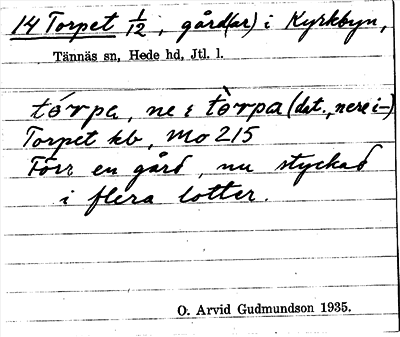 14 Torpet 1/2, gård(ar) i Kyrkbyn,
Tännäs sn, Hede hd, Jtl. l.
tórpa, ne i tòrpa (dat., nere i-)
Torpet kb, Mo 215
Förr en gård, nu styckad
i flera lotter.
O. Arvid Gudmundson 1935.